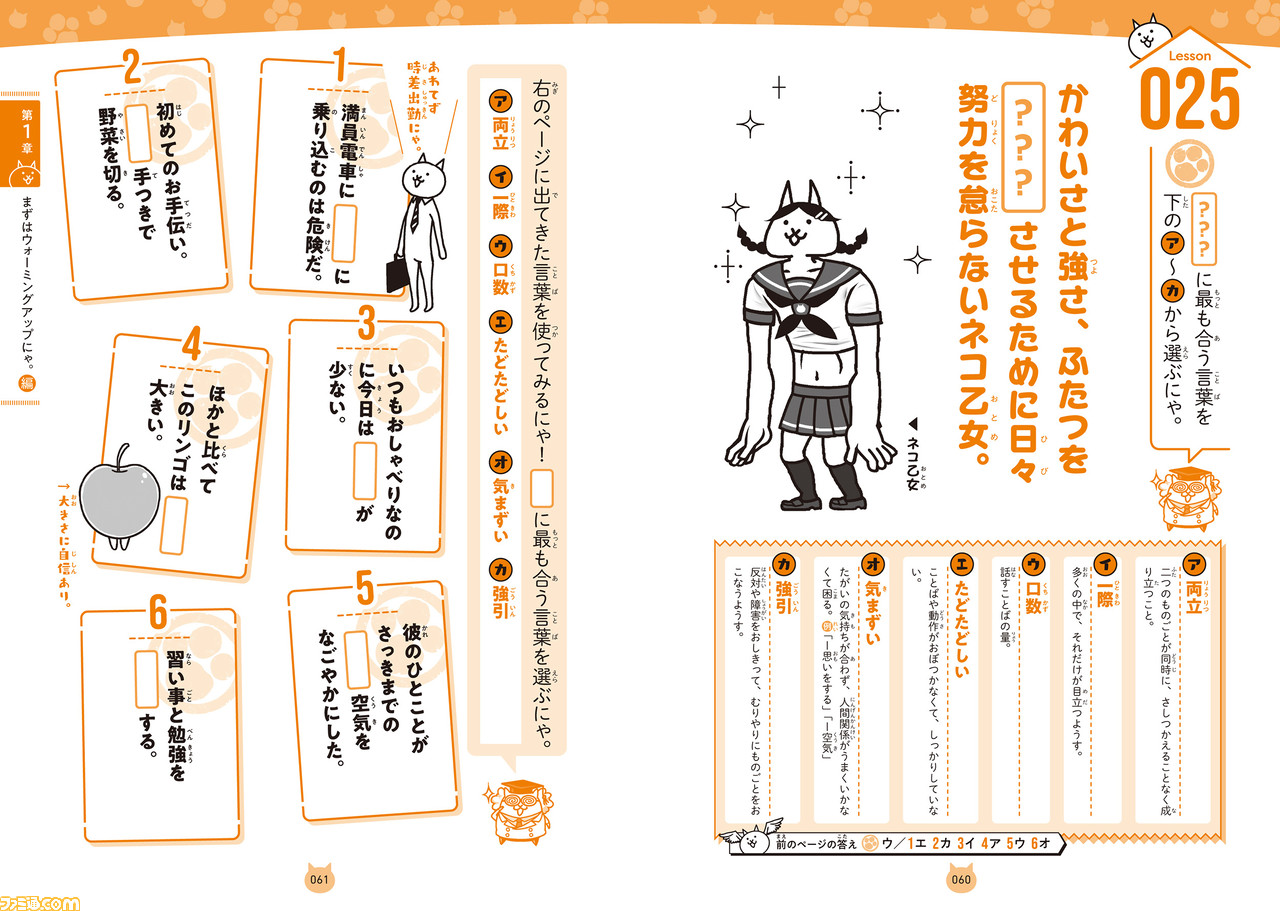 Lesson
025
???に最も合う言葉を
下のア～カから選ぶにゃ。
かわいさと強さ、ふたつを
???させるために日々
努力を怠らないネコ乙女。
◀ネコ乙女
ア 両立
二つのものごとが同時に、さしつかえることなく成
り立つこと。
イ 一際
多くの中で、それだけが目立つようす。
ウ 口数
話すことばの量。
エ たどたどしい
ことばや動作がおぼつかなくて、しっかりしていな
い。
オ 気まずい
たがいの気持ちが合わず、人間関係がうまくいかな
くて困る。例「ー思いをする」「ー空気」
カ 強引
反対や障害をおしきって、むりやりにものごとをお
こなうようす。
前のページの答え ウ／1エ 2カ 3イ 4ア 5ウ 6オ
060
右のページに出てきた言葉を使ってみるにゃ！ に最も合う言葉を選ぶにゃ。
ア 両立 イ 一際 ウ 口数 エ たどたどしい オ 気まずい カ 強引
あわてず
時差出勤にゃ。
1
満員電車に に
乗り込むのは危険だ。
2
初めてのお手伝い。
手つきで
野菜を切る。
3
いつもおしゃべりなの
に今日は が
少ない。
4
ほかと比べて
このリンゴは
大きい。
→大きさに自信あり。
5
彼のひとことが
さっきまでの
空気を
なごやかにした。
6
習い事と勉強を
する。
第1章
まずはウォーミングアップにゃ。編
061
ファミ通.com